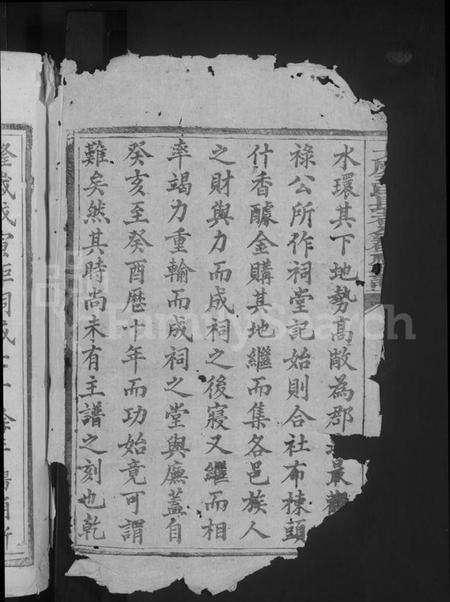 水環其下地勢高敞為郡最觀
祿公所作祠堂記始則合社布棟頭
什香醵金購其地繼而集各邑族人
之財與力而成祠之後寢又繼而相
率竭力重輸而成祠之堂與廡蓋自
癸亥至癸酉歷十年而功始竟可謂
難矣然其時尚未有主譜之刻也乾
隆歲戊寅距祠成
FamilySearch